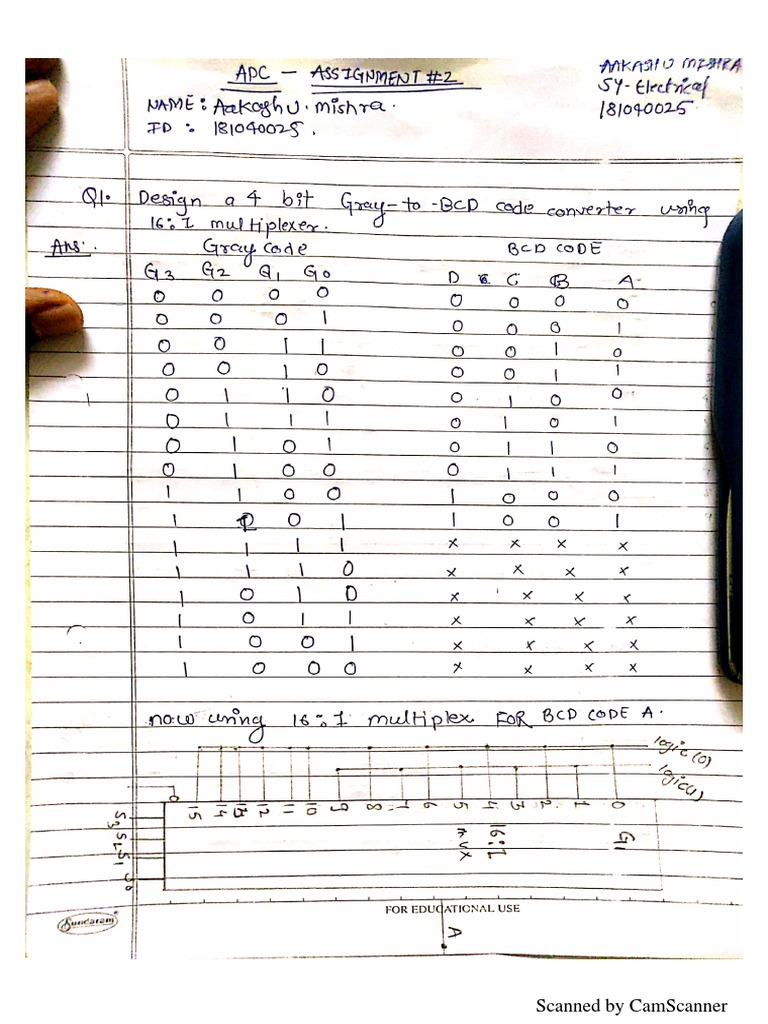 ADC - ASSIGNMENT #2
NAME: Aakash U. mishra.
ID : 181040025.
AAKASH U MISHRA
SY-Electrical
181040025
Q1. Design a 4 bit Gray-to-BCD code converter using
16:1 multiplexer.
Ans:. Gray code BCD CODE
G3 G2 G1 G0 D C B A
0 0 0 0 0 0 0 0
0 0 0 1 0 0 0 1
0 0 1 1 0 0 1 0
0 0 1 0 0 0 1 1
0 1 1 0 0 1 0 0
0 1 1 1 0 1 0 1
0 1 0 1 0 1 1 0
0 1 0 0 0 1 1 1
1 1 0 0 1 0 0 0
1 1 0 1 1 0 0 1
1 1 1 1 x x x x
1 1 1 0 x x x x
1 0 1 0 x x x x
1 0 1 1 x x x x
1 0 0 1 x x x x
1 0 0 0 x x x x
now using 16:1 multiplex FOR BCD CODE A.
logic(0)
logic(1)
15 14 13 12 11 10 9 8 7 6 5 4 3 2 1 0
S3 S2 S1 S0
16:1
MUX
G1
A
Sundaram
FOR EDUCATIONAL USE
Scanned by CamScanner